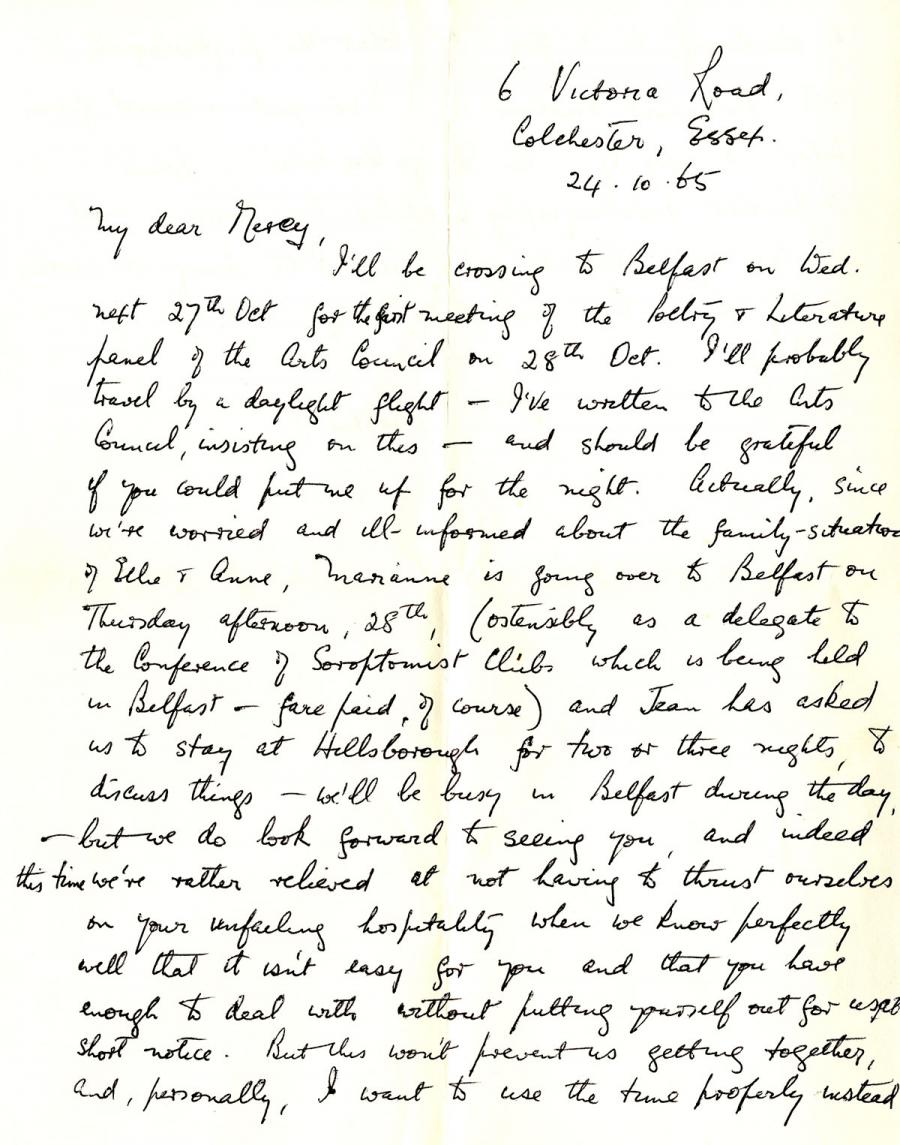 6 Victoria Road,
Colchester, Essex.
24.10.65
My dear Mercy,
I'll be crossing to Belfast on Wed.
next 27th Oct for the first meeting of the Poetry & Literature
panel of the Arts Council on 28th Oct. I'll probably
travel by a daylight flight – I've written to the Arts
Council, insisting on this – and should be grateful
if you could put me up for the night. Actually, since
we're worried and ill-informed about the family-situation
of Ellie & Anne, Marianne is going over to Belfast on
Thursday afternoon, 28th, (ostensibly as a delegate to
the Conference of Soroptomist Clubs which is being held
in Belfast – fare paid, of course) and Jean has asked
us to stay at Hillsborough for two or three nights, to
discuss things – we'll be busy in Belfast during the day,
– but we do look forward to seeing you, and indeed
this time we're rather relieved at not having to thrust ourselves
on your unfailing hospitality when we know perfectly
well that it isn't easy for you and that you have
enough to deal with without putting yourself out for us at
short notice. But this won't prevent us getting together,
and, personally, I want to use the time properly instead